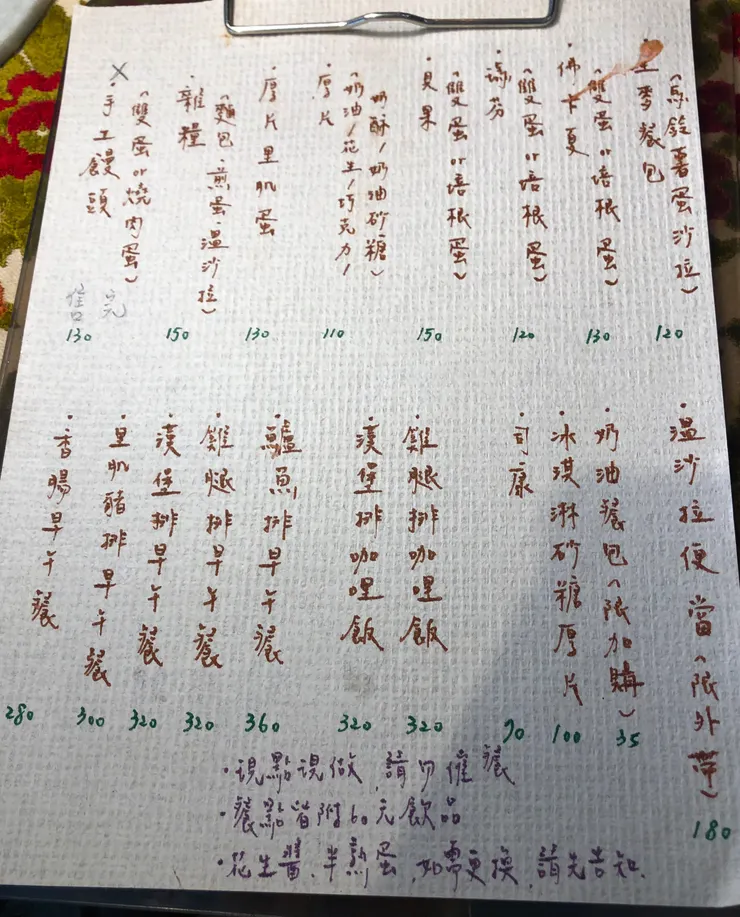 X
·手工饅頭
(雙蛋or燒肉蛋)
售完
130
·雜糧
(麵包、煎蛋、溫沙拉)
150
·厚片里肌蛋
130
·厚片
(奶油/花生/巧克力/
奶酥/奶油砂糖)
110
·貝果
(雙蛋or培根蛋)
150
·瑪芬
(雙蛋or培根蛋)
120
·佛卡夏
(雙蛋or培根蛋)
130
·全麥餐包
(馬鈴薯蛋沙拉)
120
·香腸早午餐
280
·里肌豬排早午餐
300
·漢堡排早午餐
320
·雞腿排早午餐
320
·鱸魚排早午餐
360
·漢堡排咖哩飯
320
·雞腿排咖哩飯
320
·司康
90
·冰淇淋砂糖厚片
100
·奶油餐包(限加購)
35
·溫沙拉便當(限外帶)
180
·現點現做,請勿催餐
·餐點皆附60元飲品
·花生醬、半熟蛋,如需更換,請先告知.